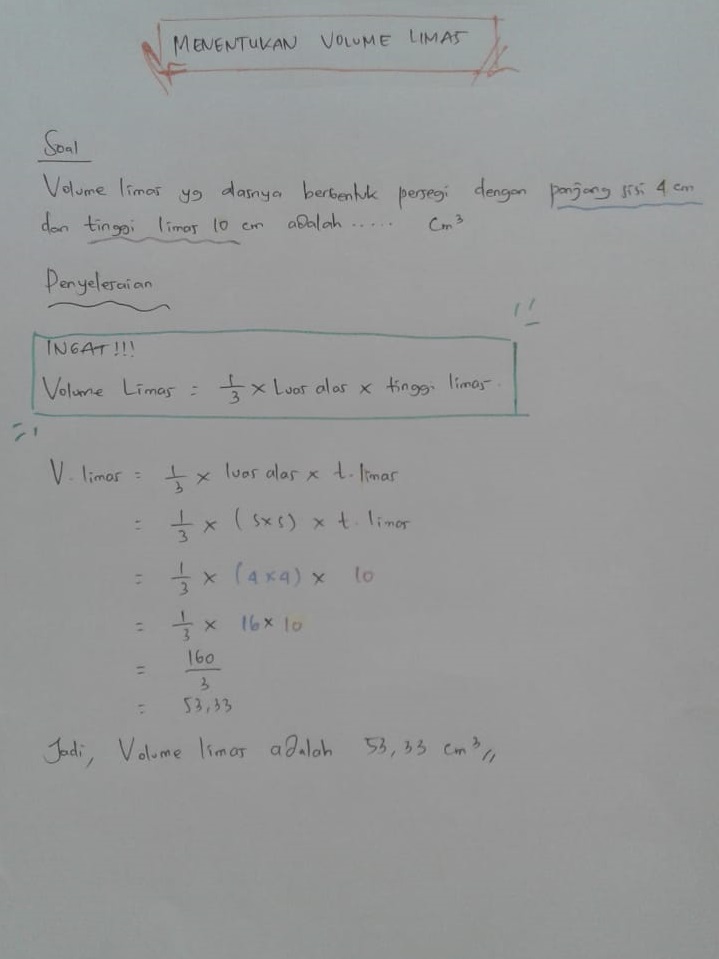 MENENTUKAN VOLUME LIMAS
Soal
Volume limas yg alasnya berbentuk persegi dengan panjang sisi 4 cm
dan tinggi limas 10 cm adalah ..... Cm³
Penyelesaian
INGAT!!!
Volume Limas = 1/3 × Luas alas × tinggi limas.
V. limas = 1/3 × luas alas × t. limas
= 1/3 × (s×s) × t. limas
= 1/3 × (4×4) × 10
= 1/3 × 16 × 10
= 160/3
= 53,33
Jadi, Volume limas adalah 53,33 cm³//